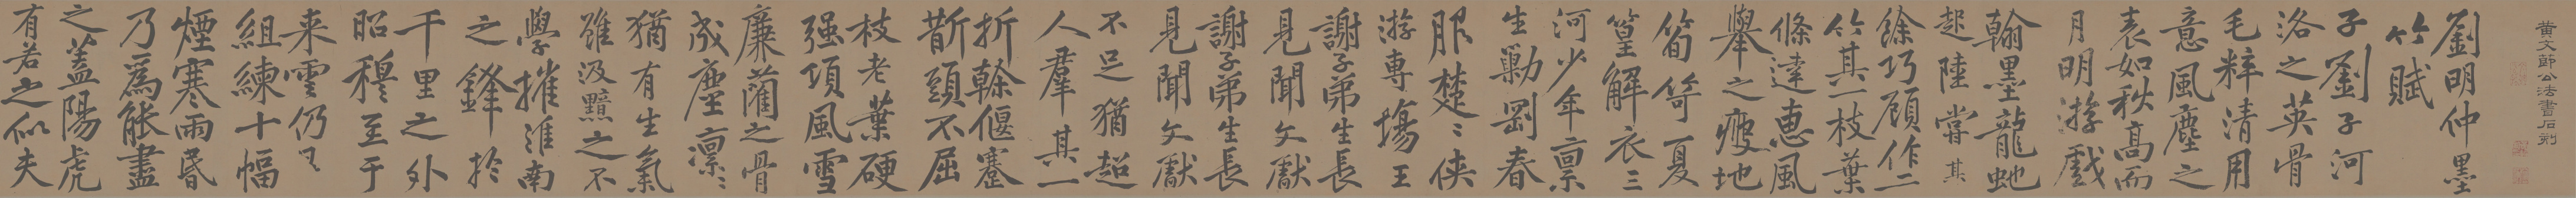 黃文節公法書石刻
劉明仲墨
竹賦
子劉子河
洛之英骨
毛粹清用
意風塵之
表如秋高而
月明游戲
翰墨龍虵
起陸嘗其
餘巧顧作二
竹其一枝葉
條達惠風
舉之瘦地
筍笴夏
篁解衣三
河少年稟
生勦剛春
服楚〻俠
游專場王
謝子弟生長
見聞文獻
謝子弟生長
見聞文獻
不足猶超
人羣其一
折榦偃蹇
斮頭不屈
枝老葉硬
强項風雪
廉藺之骨
成塵凛〻
猶有生氣
雖汲黯之不
學摧淮南
之鋒於
千里之外
昭穆至于
来雲仍
組練十幅
煙寒雨昬
乃爲能盡
之蓋陽虎
有若之似夫